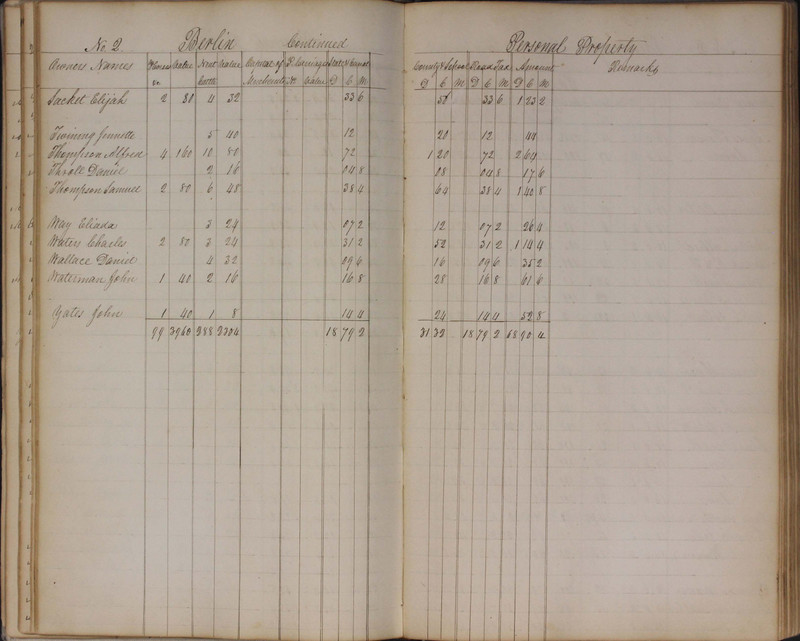 No 2 Berlin Continued Personal Property
Owners Names Horses Value Neat Value Capital of P. Carriages State & Canal County & School Road Tax Amount Remarks
No Cattle Merchants &c Value D C M D C M D C M D C M
Sacket Elijah 2 80 4 32 33 6 56 33 6 1 23 2
Twining 5 40 12 20 12 44
Thompson Alfred 4 160 10 80 72 1 20 72 2 64
Thrall Daniel 2 16 04 8 08 04 8 17 6
Thompson Samuel 2 80 6 48 38 4 64 38 4 1 40 8
Way Eliada 3 24 07 2 12 07 2 26 4
Waters Charles 2 80 3 24 31 2 52 31 2 1 14 4
Wallace Daniel 4 32 09 6 16 09 6 35 2
Waterman John 1 40 2 16 16 8 28 16 8 61 6
Yates John 1 40 1 8 14 4 24 14 4 52 8
99 3960 288 2304 18 79 2 31 32 18 79 2 68 90 4